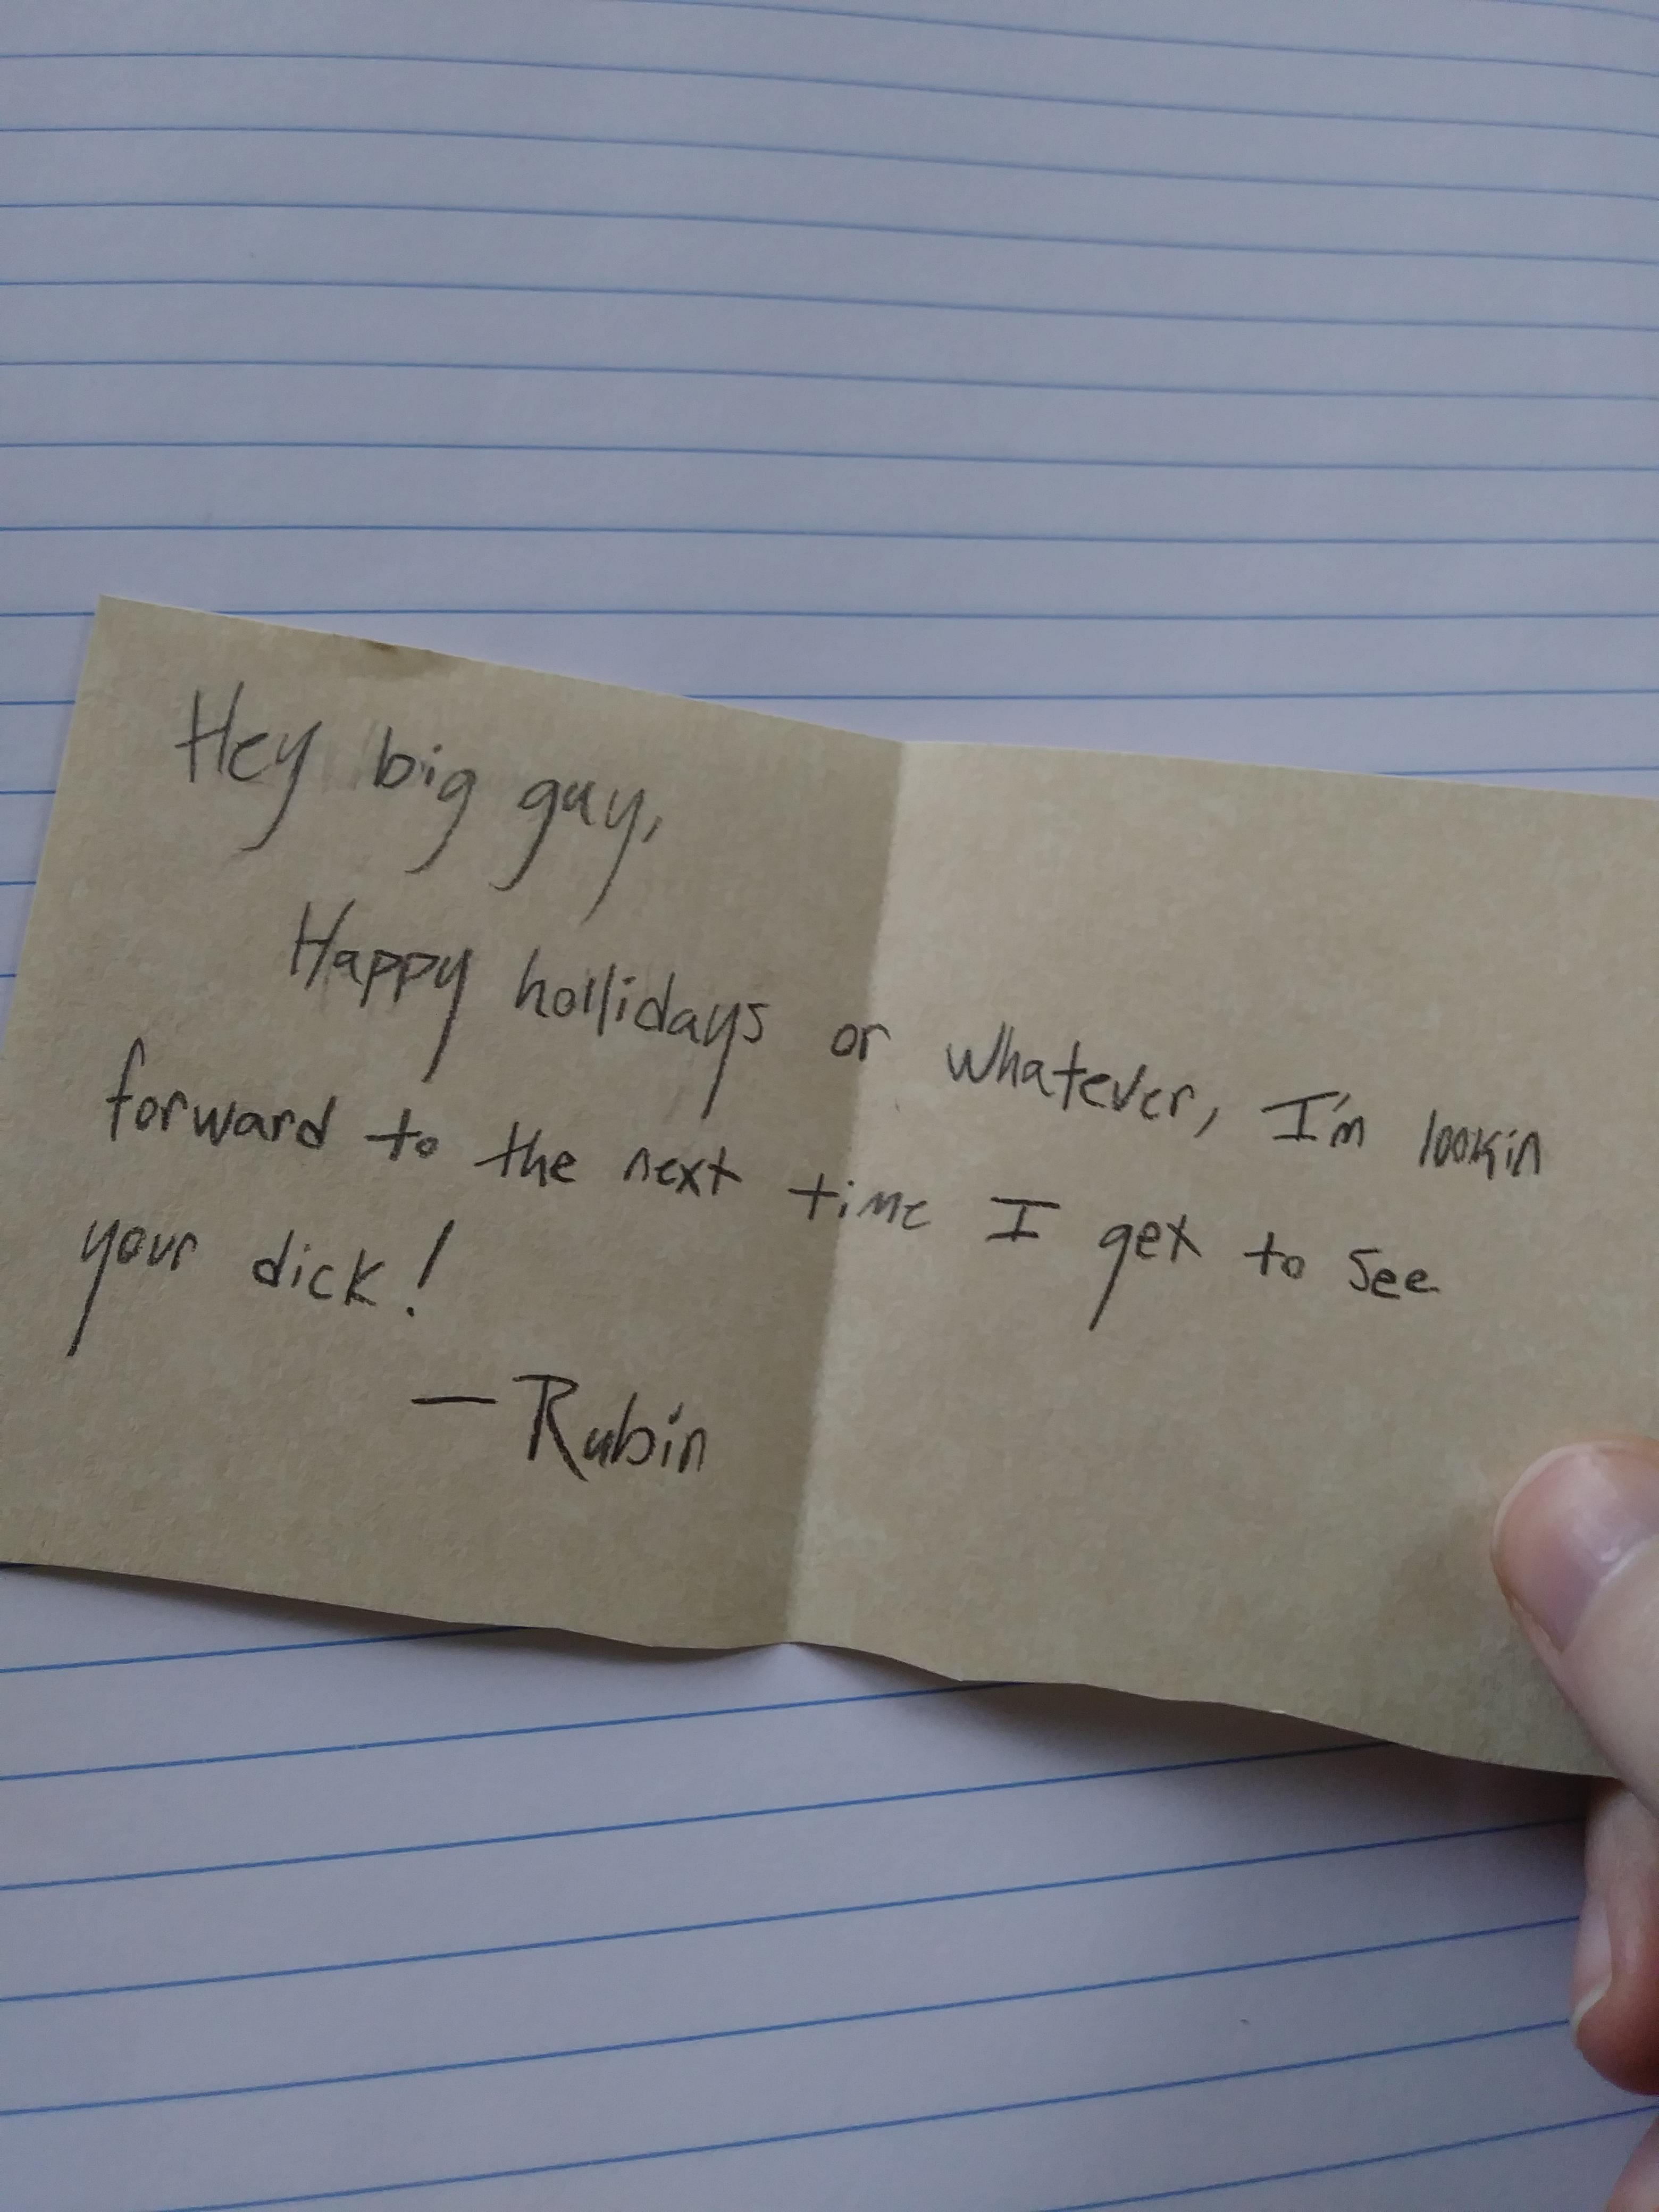 Hey big guy,
Happy hollidays or whatever, I'm lookin
forward to the next time I get to see
your dick!
— Rubin